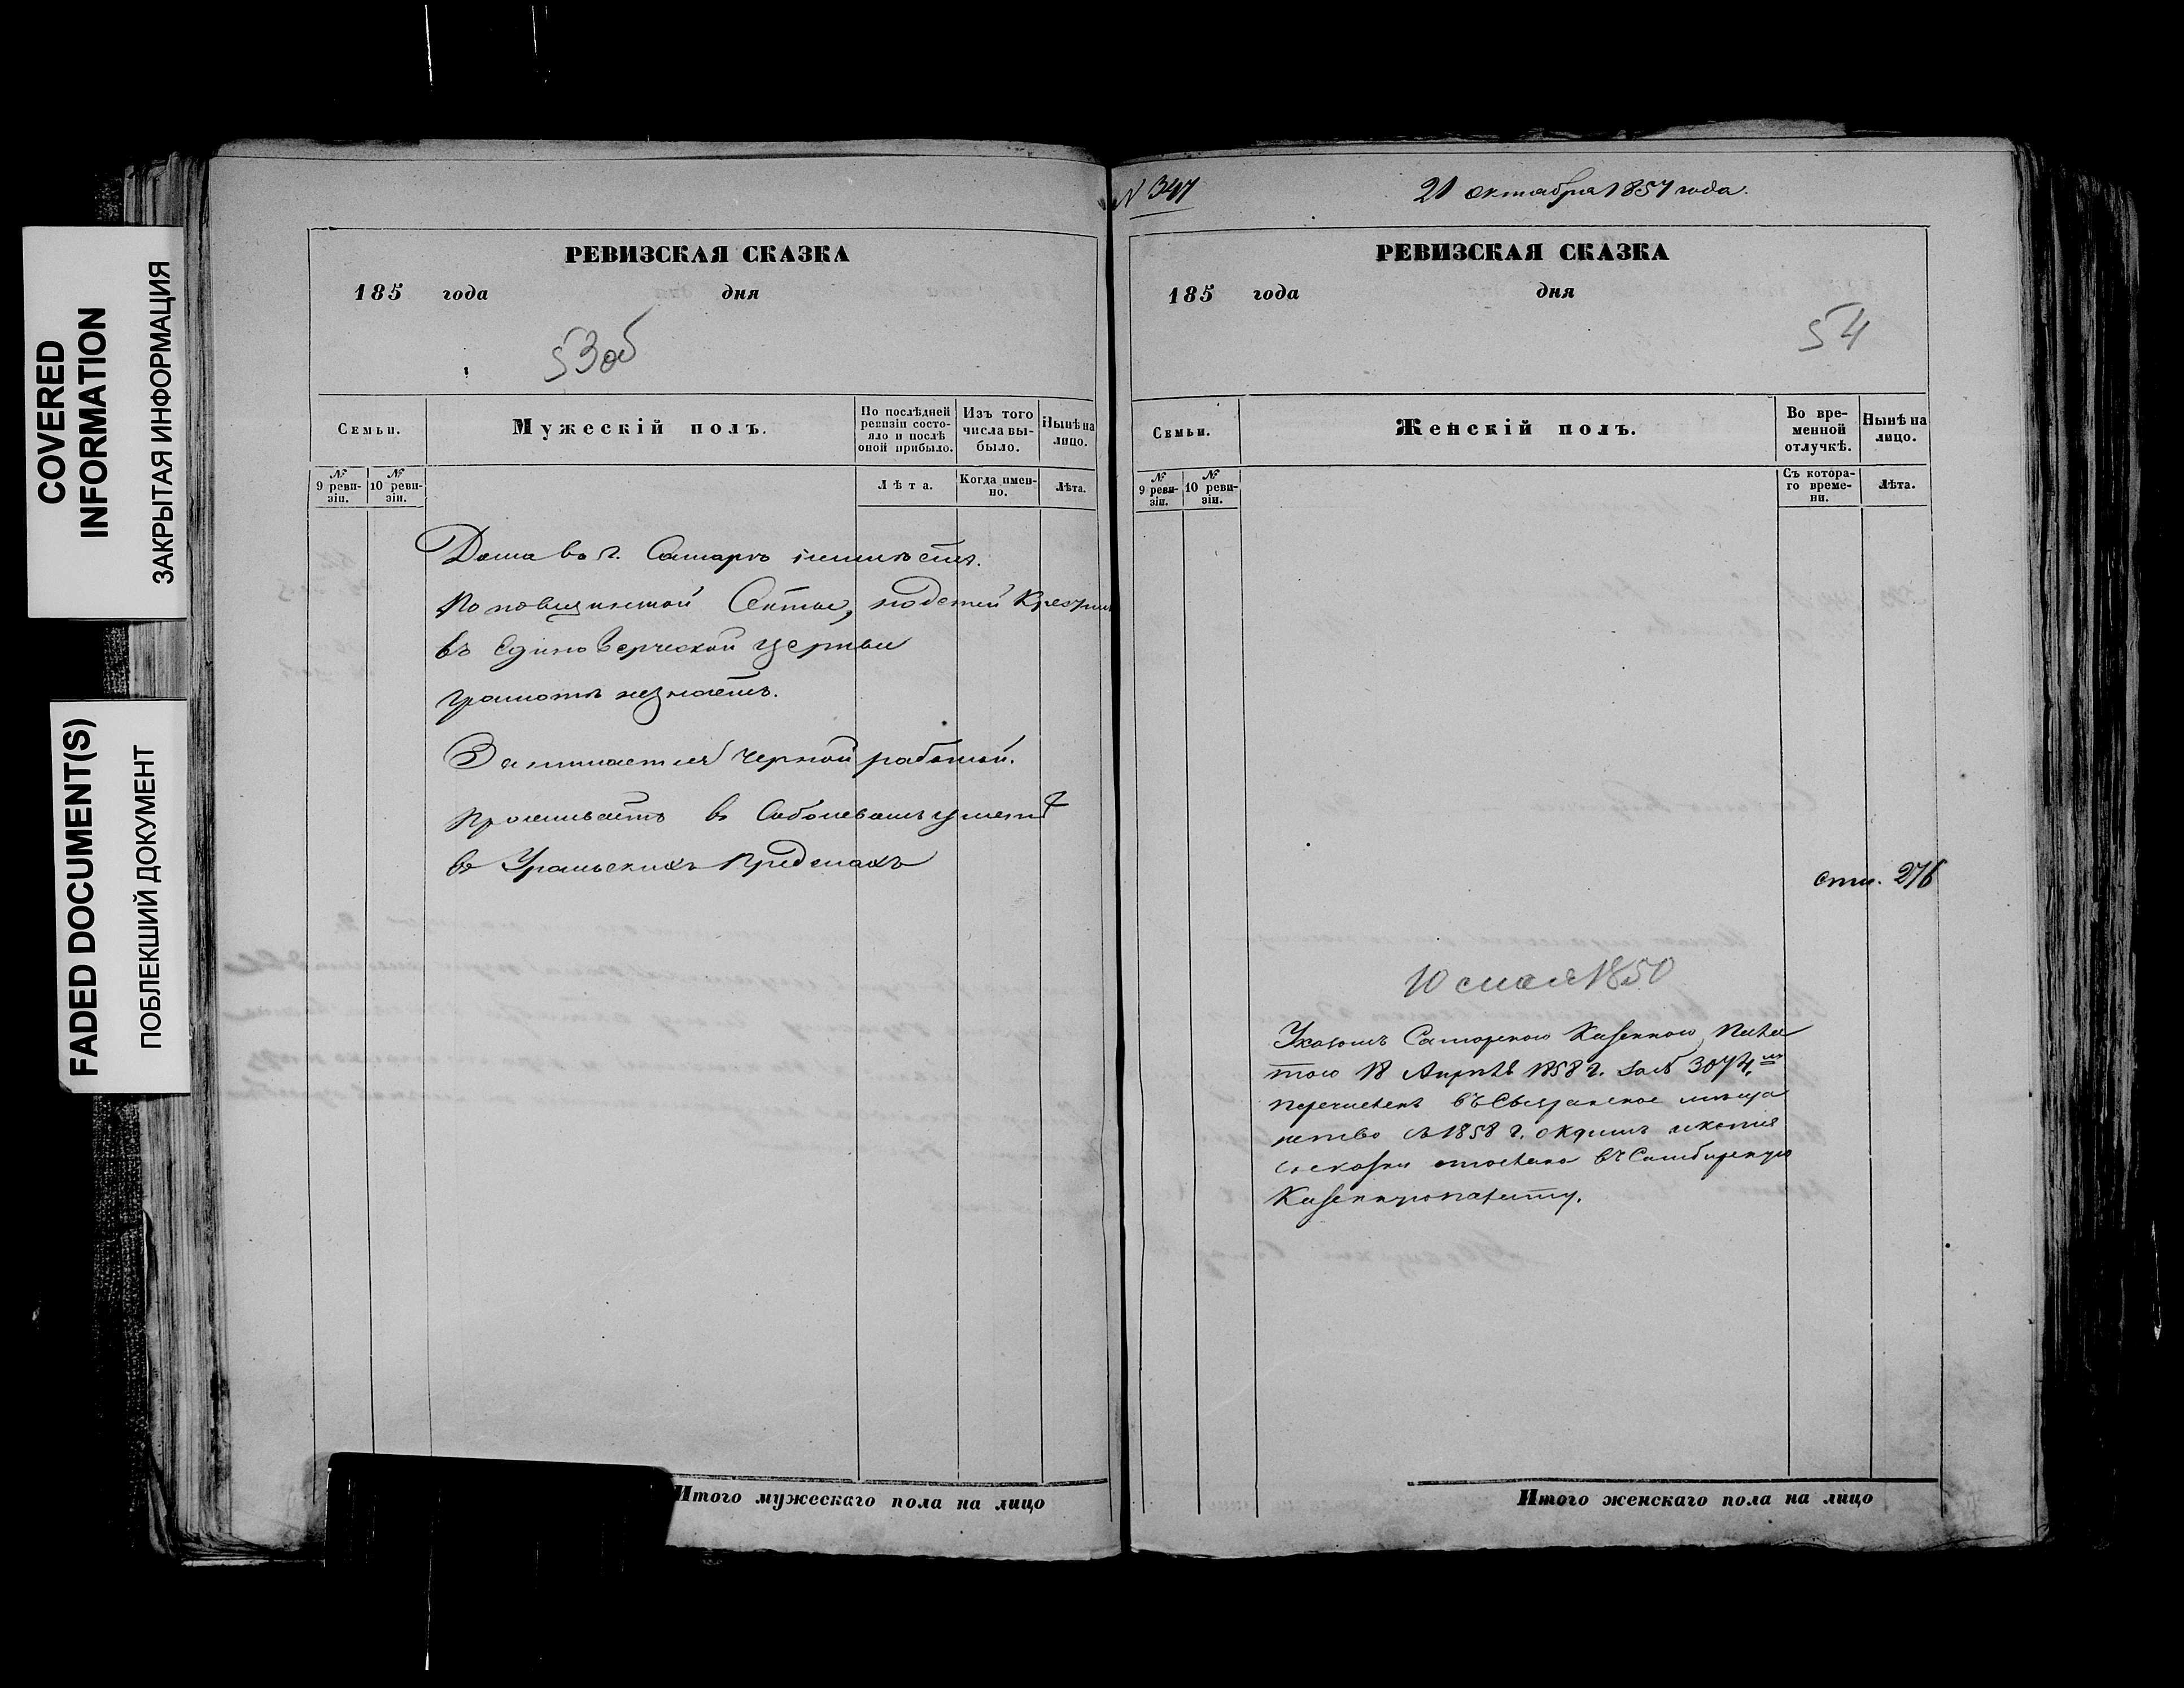 COVERED
INFORMATION
ЗАКРЫТАЯ ИНФОРМАЦИЯ
FADED DOCUMENT(S)
ПОБЛЕКШИЙ ДОКУМЕНТ
РЕВИЗСКАЯ СКАЗКА
185 года дня
53об
Семьи.
Мужескій полъ.
По послѣдней ревизіи состояло и послѣ оной прибыло.
Изъ того числа выбыло.
Нынѣ на лицо.
№ 9 ревизіи.
№ 10 ревизіи.
Лѣта.
Когда именно.
Лѣта.
Дома въ г. Самарѣ
Поповщинской Секты,
въ Единоверческой церкви
грамотѣ незнаетъ.
Занимается черной работой.
Проживаетъ в
в Уральскихъ Пределахъ
Итого мужескаго пола на лицо
N 347
21 октября 1857 года.
РЕВИЗСКАЯ СКАЗКА
185 года дня
54
Семьи.
Женскій полъ.
Во временной отлучкѣ.
Нынѣ на лицо.
№ 9 ревизіи.
№ 10 ревизіи.
Съ котораго времени.
Лѣта.
276
10 мая 1850
Указомъ Самарской Казенной Пала
той 18 Апрѣля 1858 г. за № 3074,
перечисленъ въ Сызранское мѣща
нство съ 1858 г.
въ Симбирскую
Казенную палату.
Итого женскаго пола на лицо